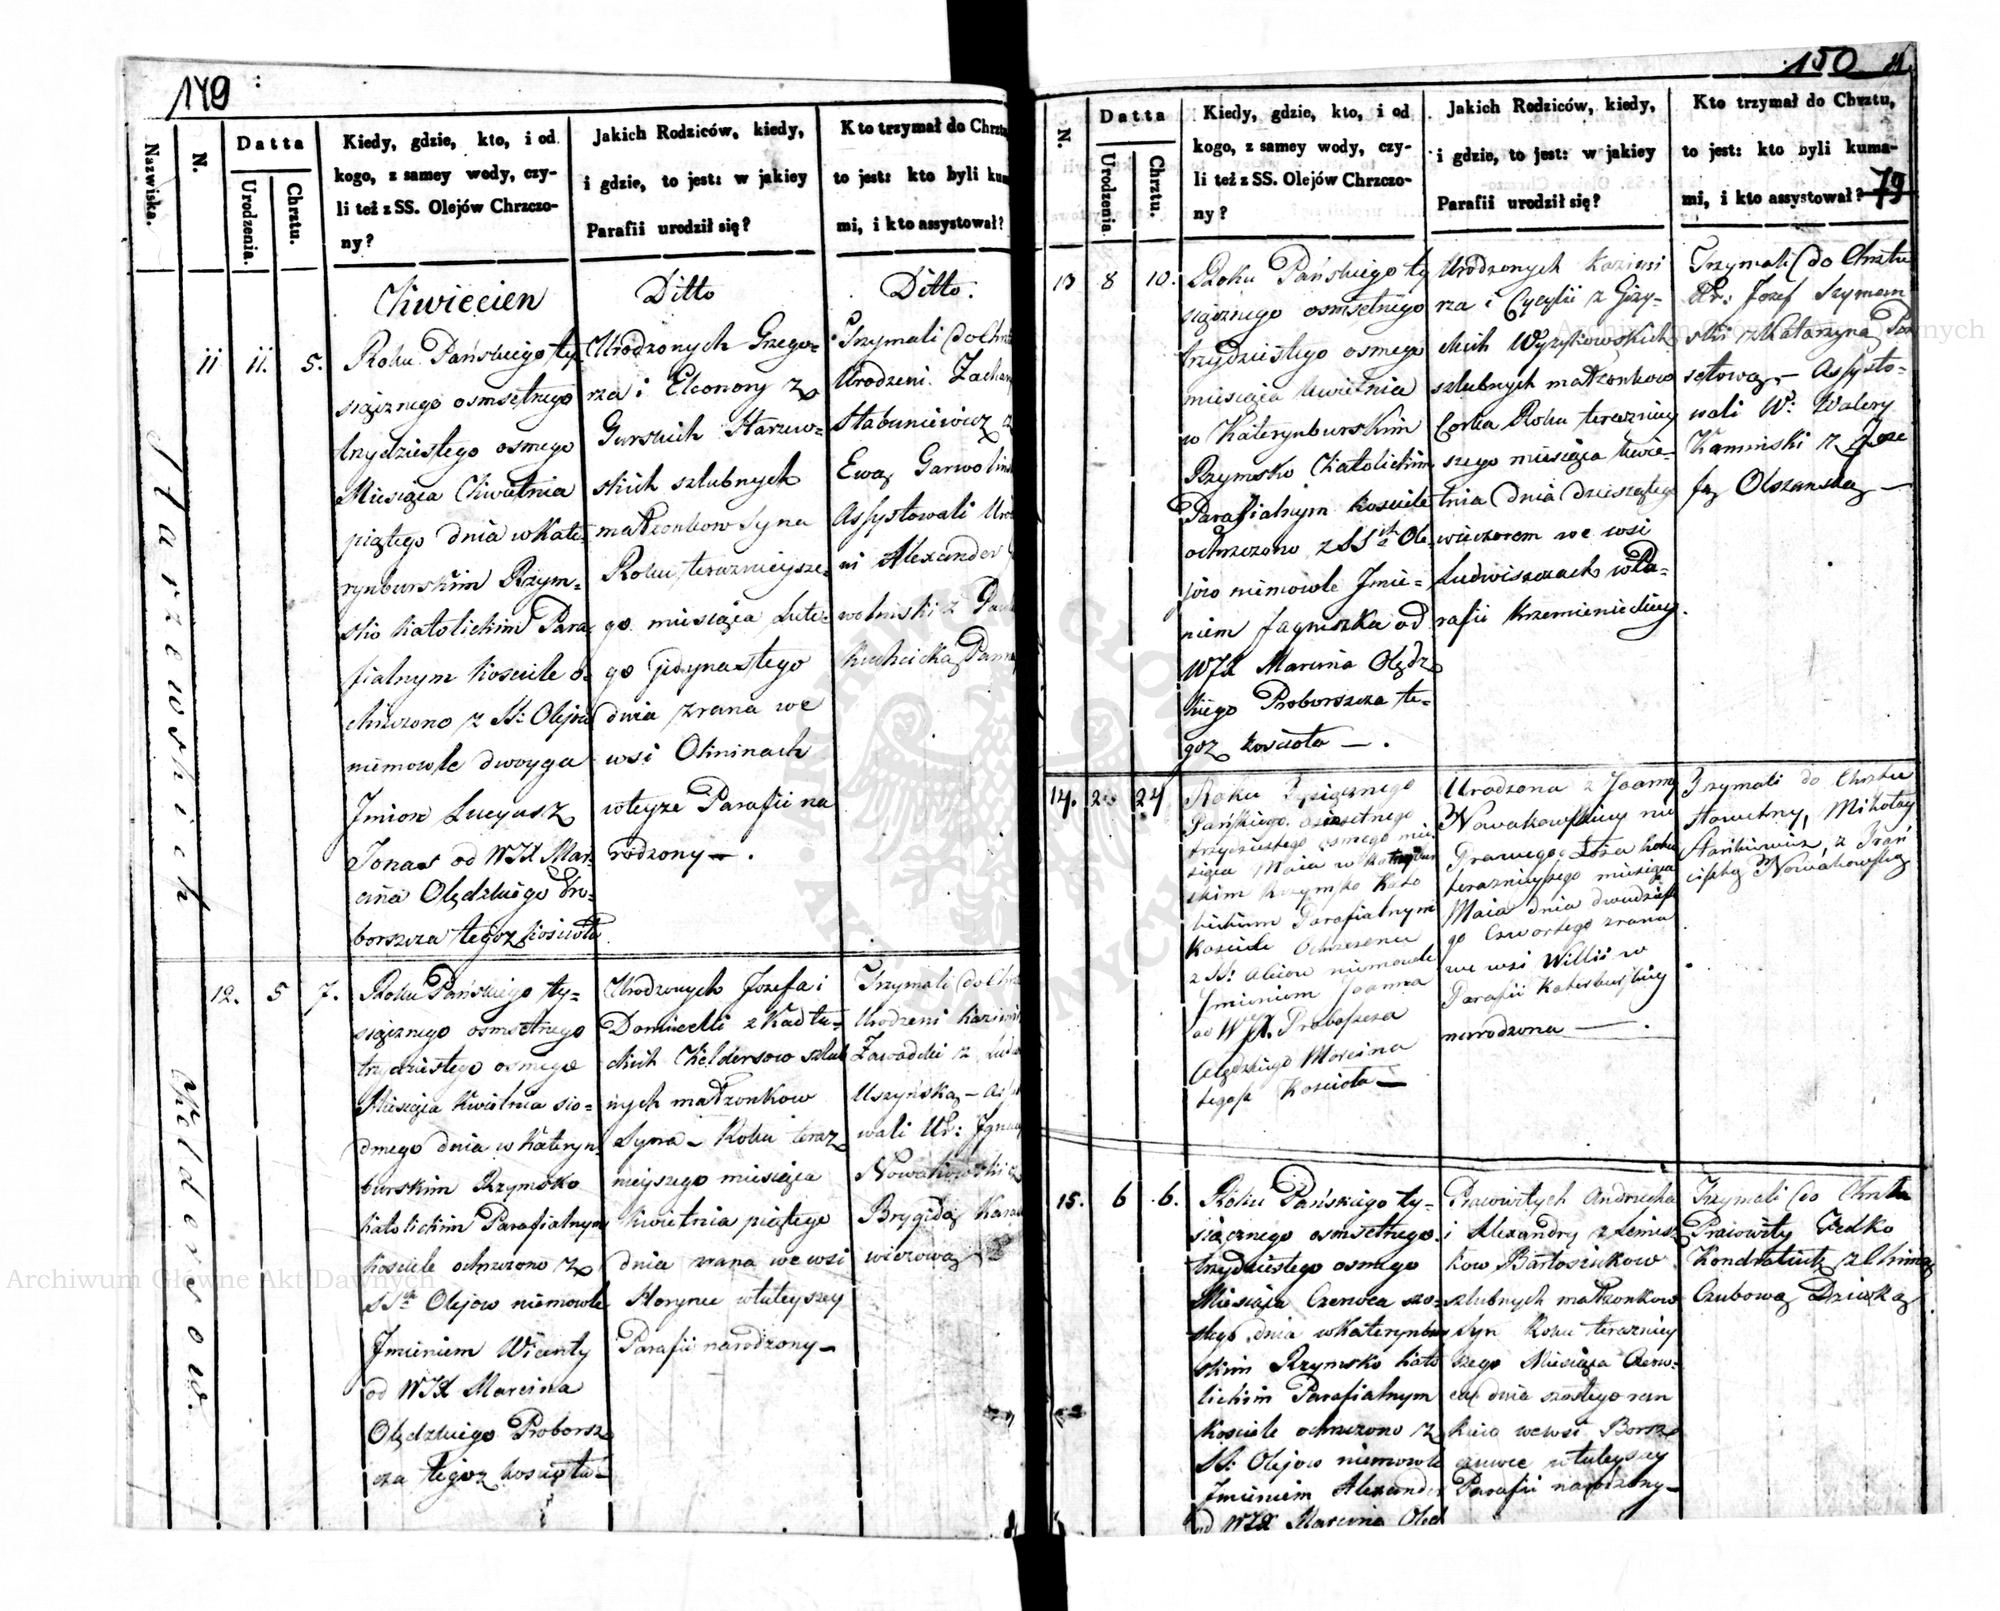 149
Nazwiska.
N.
Datta
Urodzenia.
Chrztu.
Kiedy, gdzie, kto, i od
kogo, z samey wody, czy-
li też z SS. Olejów Chrzczo-
ny?
Jakich Rodziców, kiedy,
i gdzie, to jest: w jakiey
Parafii urodził się?
Kto trzymał do Chrztu
to jest: kto byli kum
mi, i kto assystował?
Kwiecien
Ditto
Ditto.
Starzewskich
11
11.
5.
Roku Pańskiego ty
siącznego osmsetnego
trzydziestego osmego
Miesiąca Kwietnia
piątego dnia w Kate-
rynburskim Rzym-
sko Katolickim Para
fialnym kosciele o-
chrzczono z SS: Olejow
niemowle dwoyga
Imion Lucyusz
Jonas od WJX Mar-
cina Olędzkiego Pro-
borszcza tegoz koscioła
Urodzonych Grzego-
rza i Eleonory z
Gurskich Starzew-
skich szlubnych
małzonkow Syna
Roku terazniejsze-
go miesiąca Lute-
go jedynastego
dnia zrana we
wsi OknInach
wteyze Parafii na
rodzony —.
Trzymali do Chrz
Urodzeni Zachar
Ewą Garwolins
Assystowali Uro
ni Alexander
Kildersow.
12.
5
7.
Roku Pańskiego ty-
siącznego osmsetnego
trzydziestego osmego
Miesiąca Kwietnia sio-
dmego dnia w Kateryn
burskim Rzymsko
katolickim Parafialnym
kosciele ochrzczono z
SSch Olejow niemowle
Imieniem Wicenty
od WJX Marcina
Olędzkiego Proborsz
cza tegoz kosciola
Urodzonych Jozefa i
Domicelli z Kadłu-
ckich Kieldersow szlub
nych małzonkow
Syna — Roku teraz-
nieyszego miesiąca
kwietnia piątego
dnia zrana we wsi
Horynce wtuteyszey
Parafii narodzony —
Trzymali do Chrz
Urodzeni Kazimi
Zawadzki z Ludw
Uszyńską — Ass
wali Ur: Ignacy
Nowakowski z
Brygidą
wiczową
150
79
N.
Datta
Urodzenia
Chrztu.
Kiedy, gdzie, kto, i od
kogo, z samey wody, czy-
li też z SS. Olejów Chrzczo-
ny?
Jakich Rodziców, kiedy,
i gdzie, to jest: w jakiey
Parafii urodził się?
Kto trzymał do Chrztu,
to jest: kto byli kuma-
mi, i kto assystował?
13
8
10.
Roku Pańskiego ty
siącznego osmsetnego
trzydziestego osmego
miesiąca kwietnia
w Katerynburskim
Rzymsko Katolickim
Parafialnym kosciele
ochrzczono z SSch Ole-
jow niemowle Imie-
niem Jagniszka od
WJX Marcina Olędz
kiego Proborszcza te-
goz kosciola —.
Urodzonych Kazimi
rza i Cycylii z Giży-
ckich Wyzykowskich
szlubnych małzonkow
Corka Roku terazniey
szego miesiąca kwie-
tnia dnia dziesiątego
wieczorem we wsi
Ludwiszczach w Pa-
rafii krzemienieckiey.
Trzymali do Chrztu
Ur: Jozef Szyman
ski z Katarzyną
Assysto-
wali W: Walery
Kaminski z Joze
fą Olszanską —
14.
24
Roku Tysiącznego
Pańskiego osmsetnego
trzydziestego osmego mie
siąca Maia w Katrybur
skim Rzymsko Kato
lickim Parafialnym
Kosciele Ochrzczono
z SS: Oleiow niemowle
Imieniem Joanna
od WJX. Proboszcza
Olędzkiego Marcina
tegosz Kosciola —
Urodzona z Joanny
Nowakowskiey nie
Prawego Łoża Roku
teraznieyszego miesiąca
Maia dnia dwudzieste
go Czwartego zrana
we wsi Willii w
Parafii Katerburskiey
narodzona —.
Trzymali do Chrztu
Mikołay
Stankiewicz, z Fran
ciszką Nowakowską
15.
6
6.
Roku Pańskiego ty-
siącznego osmsetnego
trzydziestego osmego
Miesiąca Czerwca szo-
stego dnia w Katerynbur
skim Rzymsko kato
lickim Parafialnym
kosciele ochrzczono z
SS: Olejow niemowle
Imieniem Alexander
od WJX Marcina Olęd
Prawowitych Andrucha
i Alexandry z Lenisz
kow Bartosiukow
szlubnych małzonkow
Syn Roku terazniey
szego Miesiąca Czerw-
ca dnia szostego ran
kiem we wsi Borsz-
czuwce wtuteyszey
Parafii narodzony —
Trzymali do Chrztu
Prawowity Fedko
Kondratiuk z
Czubową Dziewką
Archiwum Główne Akt Dawnych
Archiwum Główne Akt Dawnych